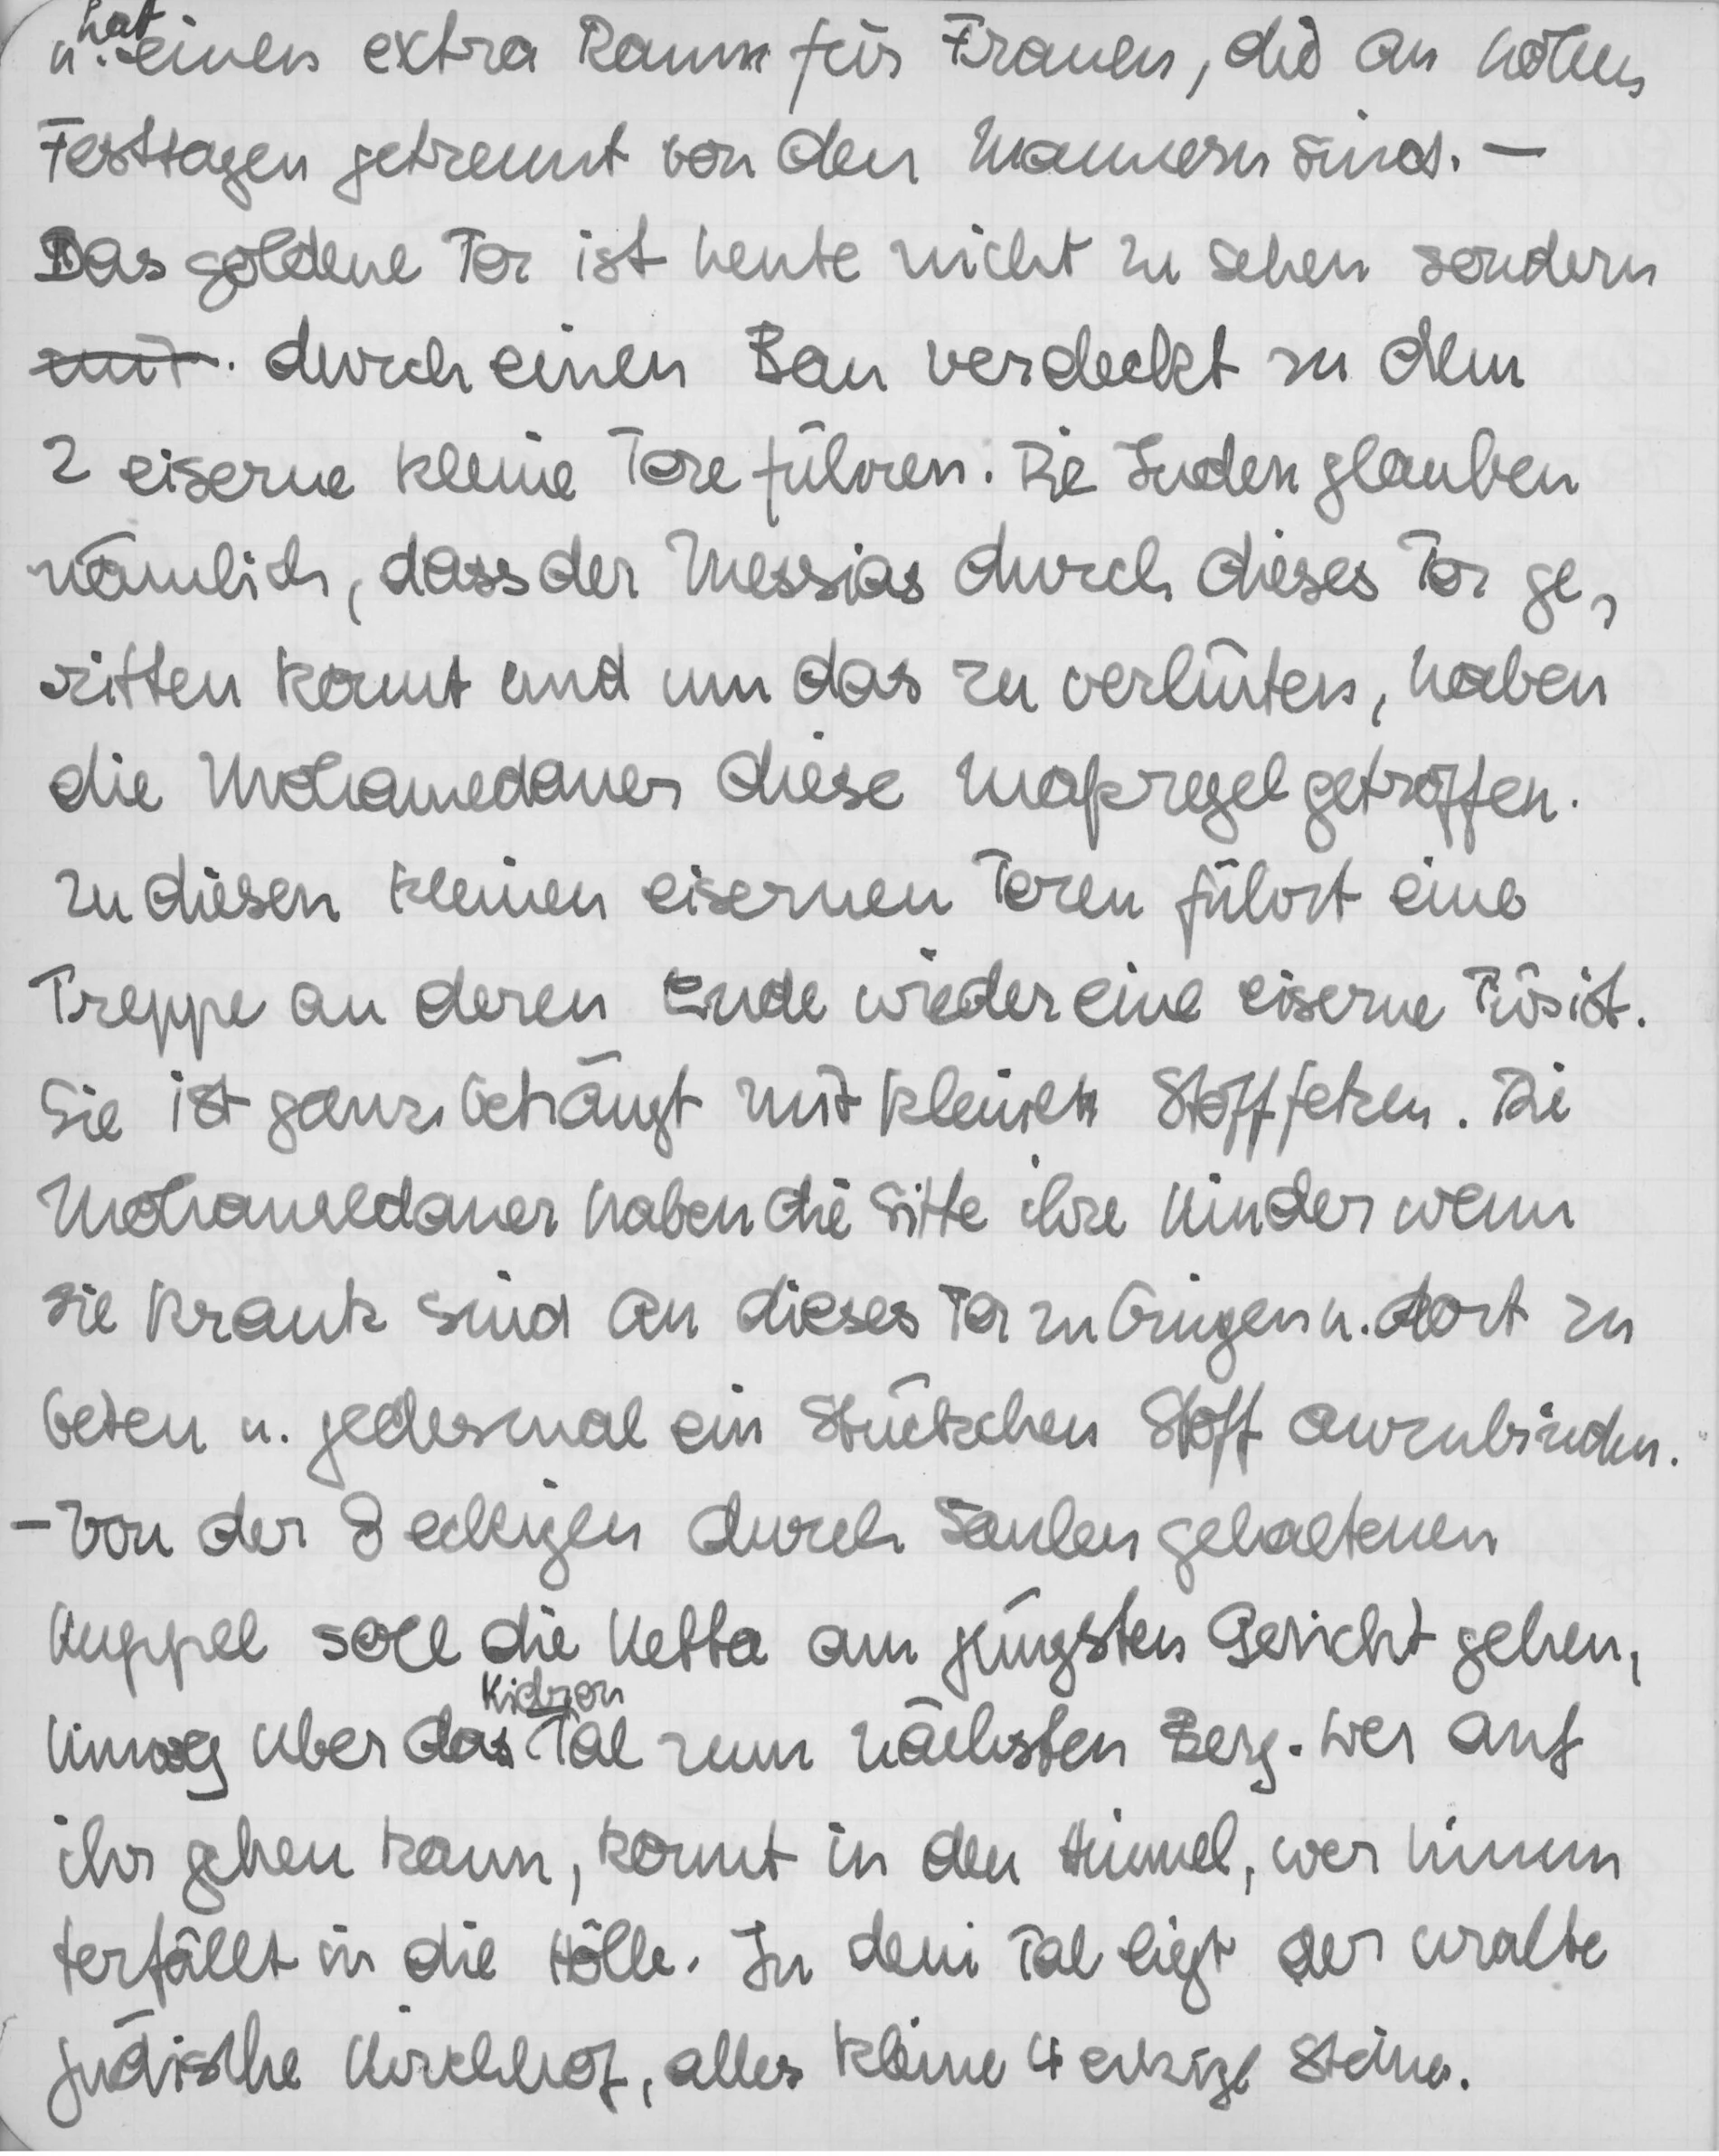 u. hat einen extra Raum für Frauen, die an hohen
Festtagen getrennt von den Männern sind. —
Das goldene Tor ist heute nicht zu sehen sondern
mit. durch einen Bau verdeckt zu dem
2 eiserne kleine Tore führen. Die Juden glauben
nämlich, dass der Messias durch dieses Tor ge-
ritten kommt und um das zu verhüten, haben
die Mohamedaner diese Maßregel getroffen.
Zu diesen kleinen eisernen Toren führt eine
Treppe an deren Ende wieder eine eiserne Tür ist.
Sie ist ganz behängt mit kleinen Stoffetzen. Die
Mohameedaner haben die Sitte ihre Kinder wenn
sie krank sind an dieses Tor zu bringen u. dort zu
beten u. jedesmal ein Stückchen Stoff anzubinden.
– Von der 8 eckigen durch Säulen gehaltenen
Kuppel soll die Kette am jüngsten Gericht gehen,
hinweg über das Kidron Tal zum nächsten Berg. Wer auf
ihr gehen kann, kommt in den Himmel, wer hinun
terfällt in die Hölle. In dem Tal liegt der uralte
jüdische Kirchhof, alles kleine 4 eckige Steine.